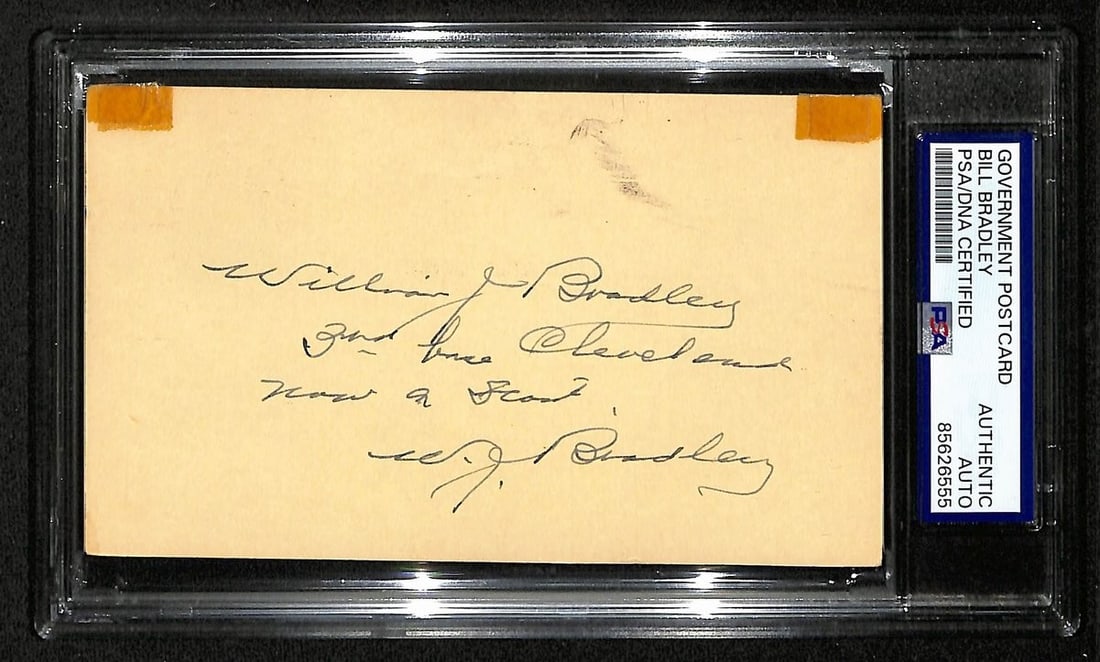 William J Bradley
3rd base Cleveland
now a Scout.
W. J. Bradley
GOVERNMENT POSTCARD
BILL BRADLEY
PSA/DNA CERTIFIED
AUTHENTIC
AUTO
85626555
PSA